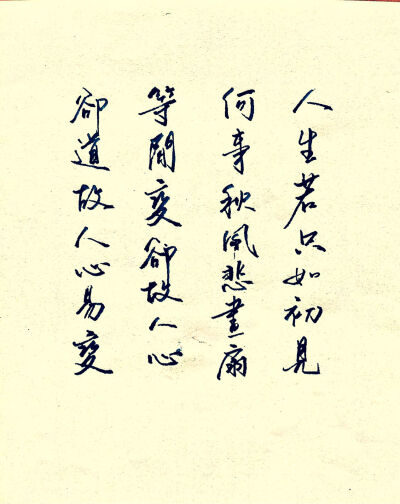 人生若只如初見
何事秋風悲畫扇
等閒變卻故人心
卻道故人心易變